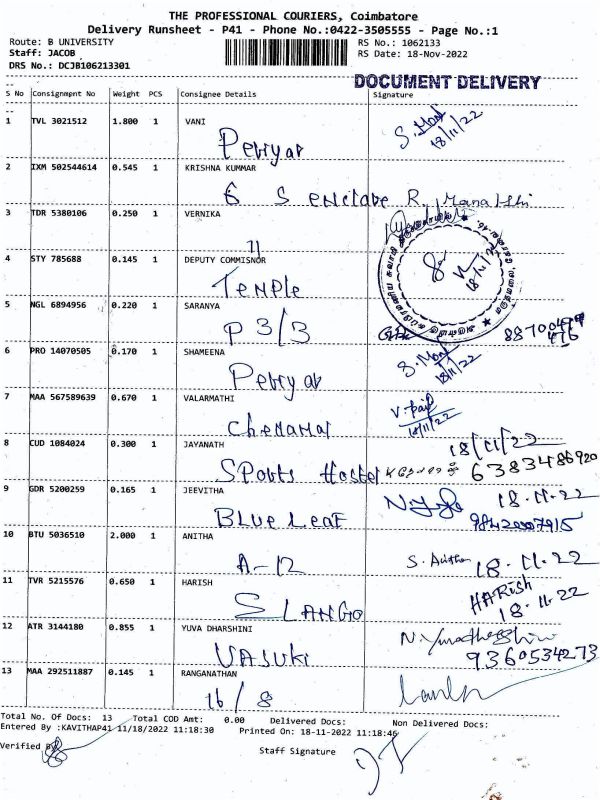 THE PROFESSIONAL COURIERS, Coimbatore
Delivery Runsheet - P41 - Phone No.:0422-3505555 - Page No.:1
Route: B UNIVERSITY
Staff: JACOB
DRS No.: DCJB106213301
RS No.: 1062133
RS Date: 18-Nov-2022
DOCUMENT DELIVERY
S No Consignment No Weight PCS Consignee Details Signature
1 TVL 3021512 1.800 1 VANI
Periyar
S. Mani
18/11/22
2 IXM 502544614 0.545 1 KRISHNA KUMMAR
6 S enclave R
3 TDR 5380106 0.250 1 VERNIKA
4 STY 785688 0.145 1 DEPUTY COMMISNOR
11
Temple
5 NGL 6894956 0.220 1 SARANYA
P 3/3
6 PRO 14070505 0.170 1 SHAMEENA
Periyar
S. Mani
18/11/22
7 MAA 567589639 0.670 1 VALARMATHI
18/11/22
8 CUD 1084024 0.300 1 JAYANATH
Sports Hostel
18/11/22
6383486920
9 GDR 5200259 0.165 1 JEEVITHA
Blue Leaf
18.11.22
9842007915
10 BTU 5036510 2.000 1 ANITHA
A-12
S. Anitha 18.11.22
11 TVR 5215576 0.650 1 HARISH
SLANGO
HARISH
18.11.22
12 ATR 3144180 0.855 1 YUVA DHARSHINI
VASUKI
9360534273
13 MAA 292511887 0.145 1 RANGANATHAN
16/8
Total No. Of Docs: 13 Total COD Amt: 0.00 Delivered Docs: Non Delivered Docs:
Entered By :KAVITHAP41 11/18/2022 11:18:30 Printed On: 18-11-2022 11:18:46
Verified By
Staff Signature